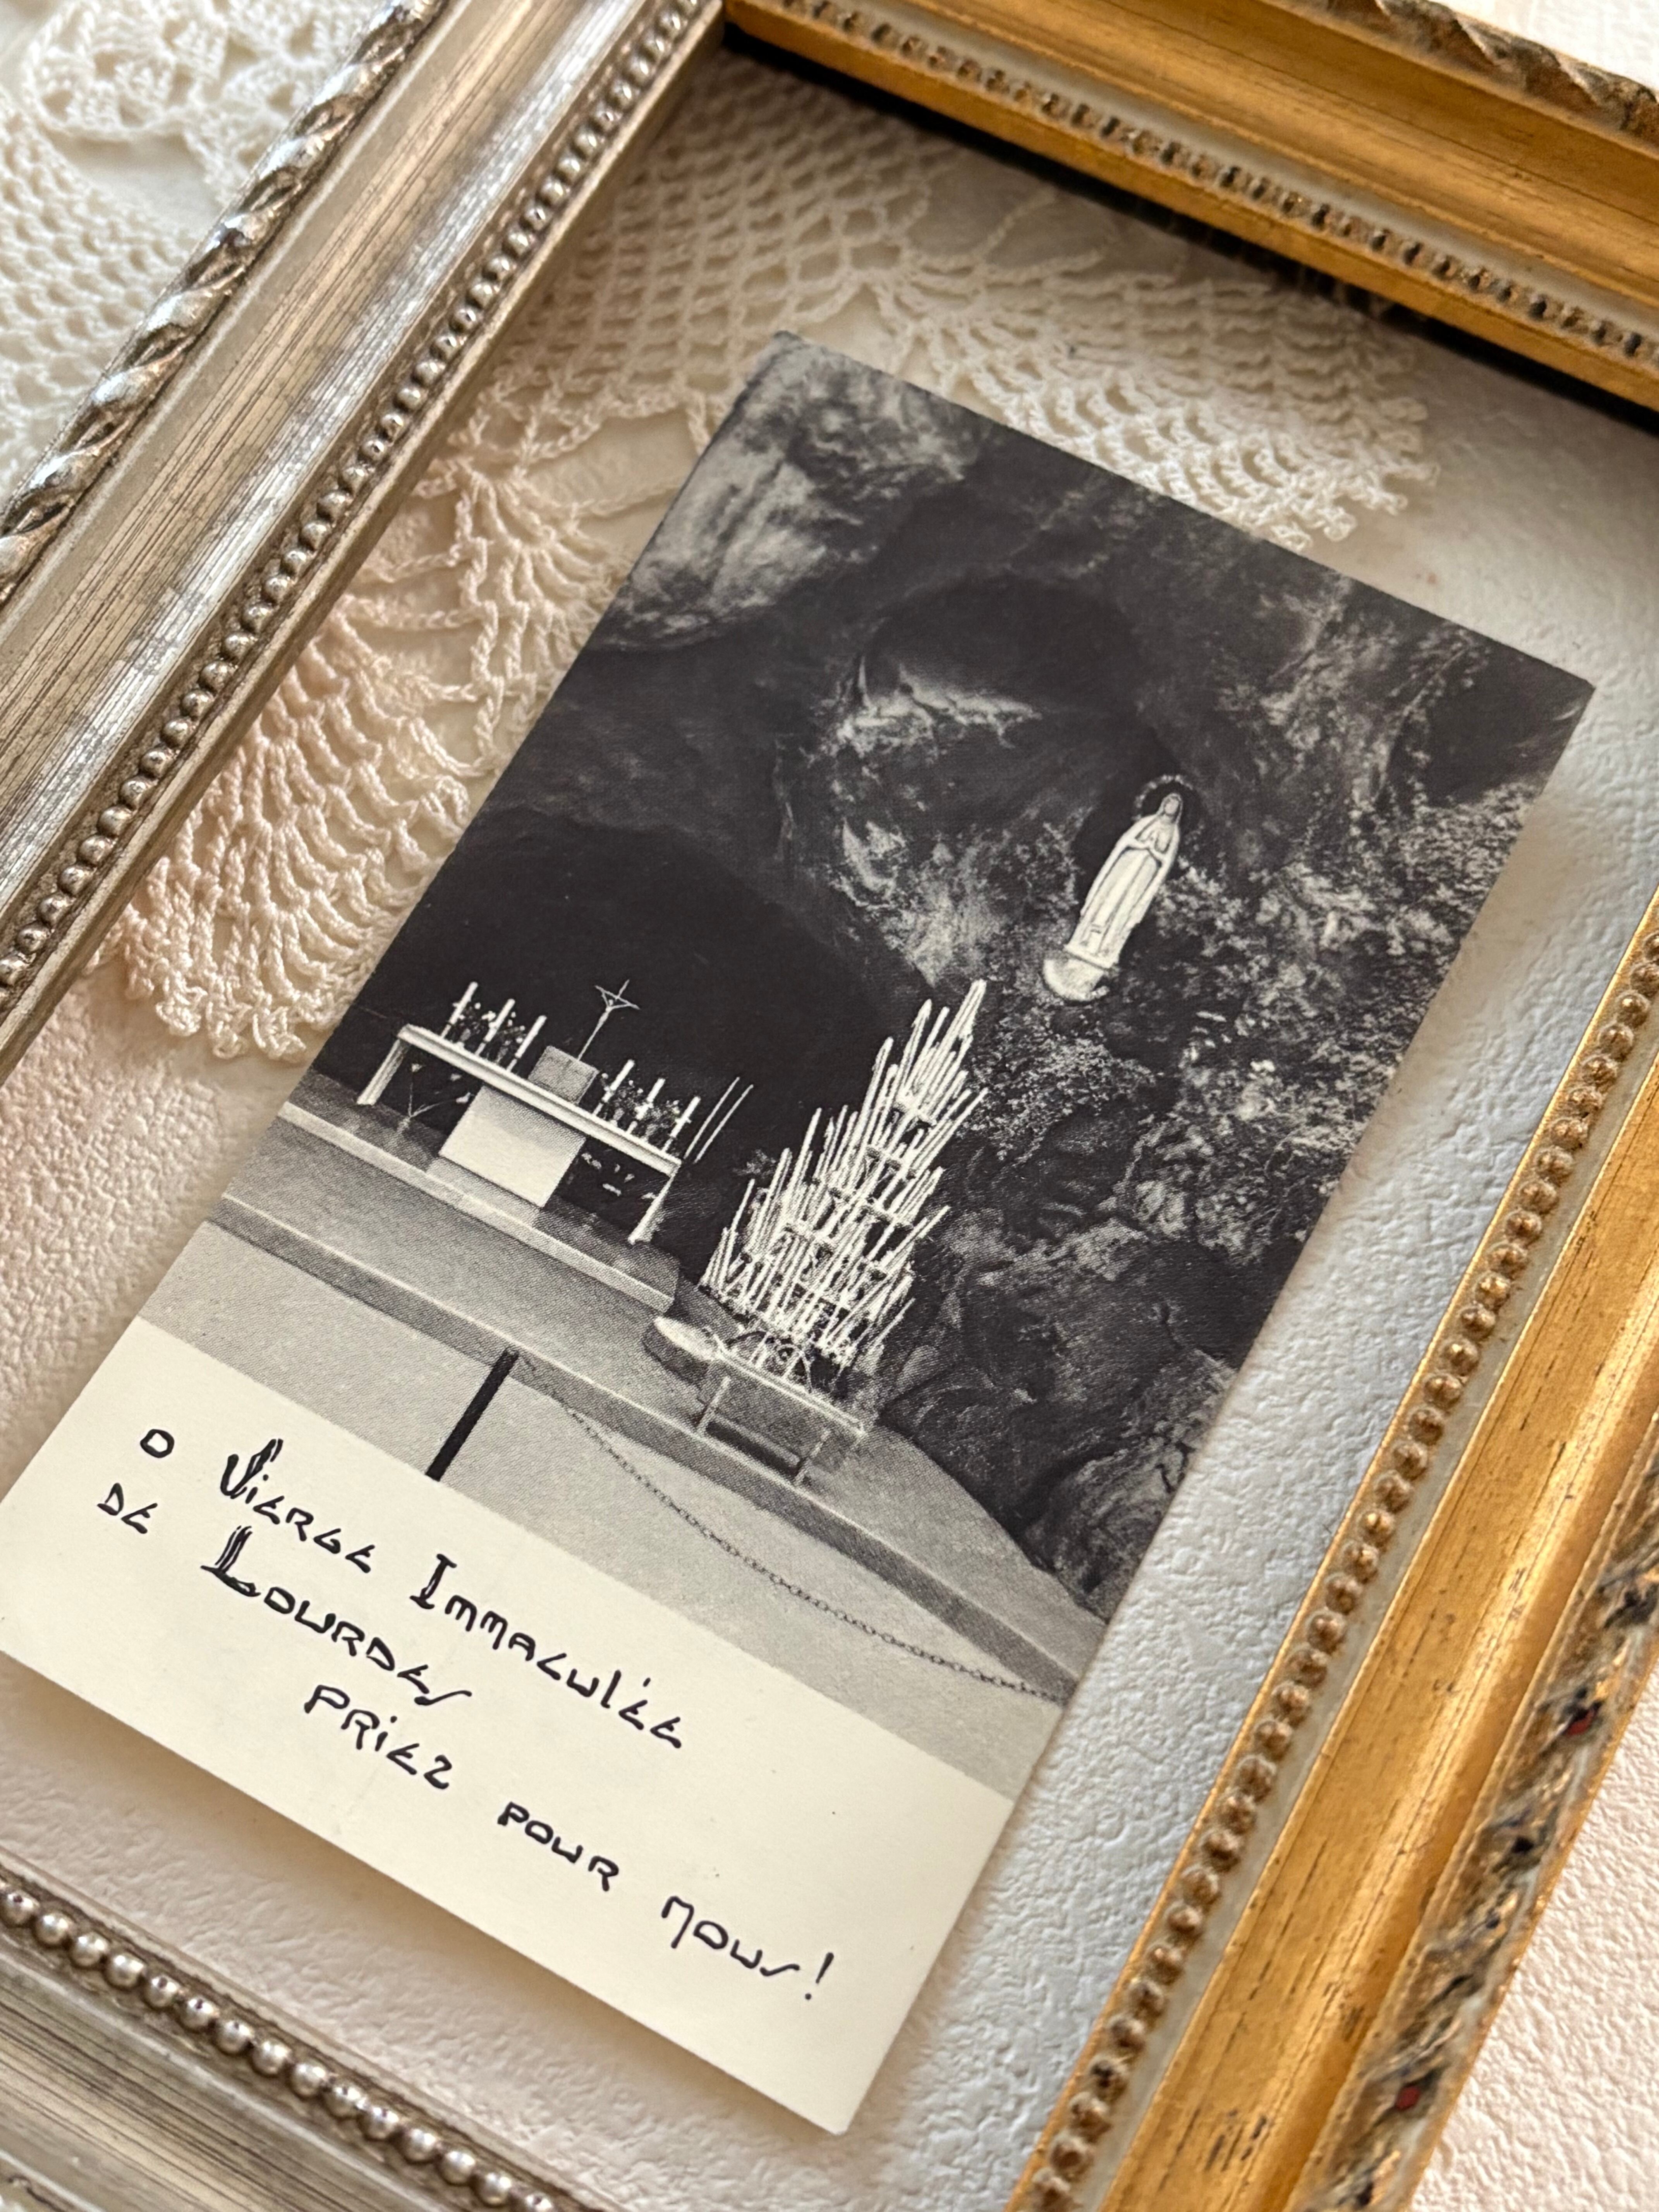 O Vierge Immaculée
de Lourdes
priez pour nous!